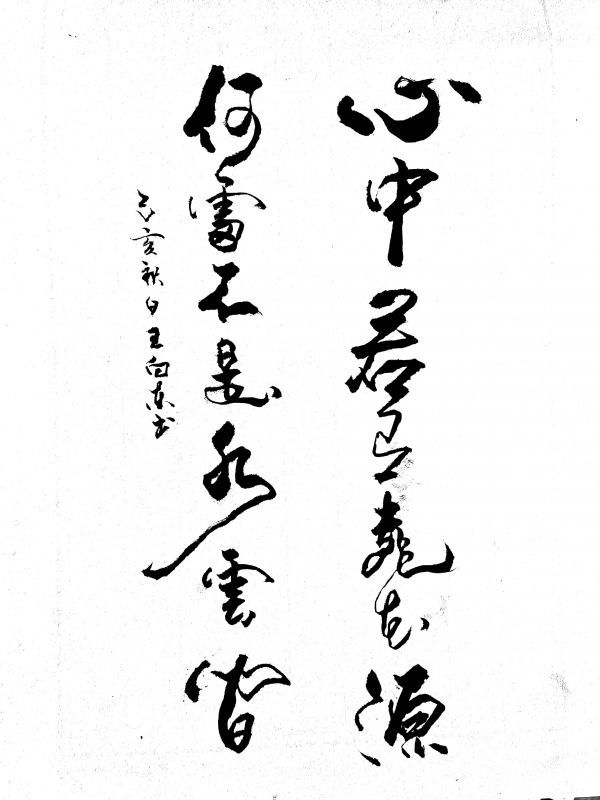 心中若有桃花源
何處不是水雲間
己亥秋日王向东书